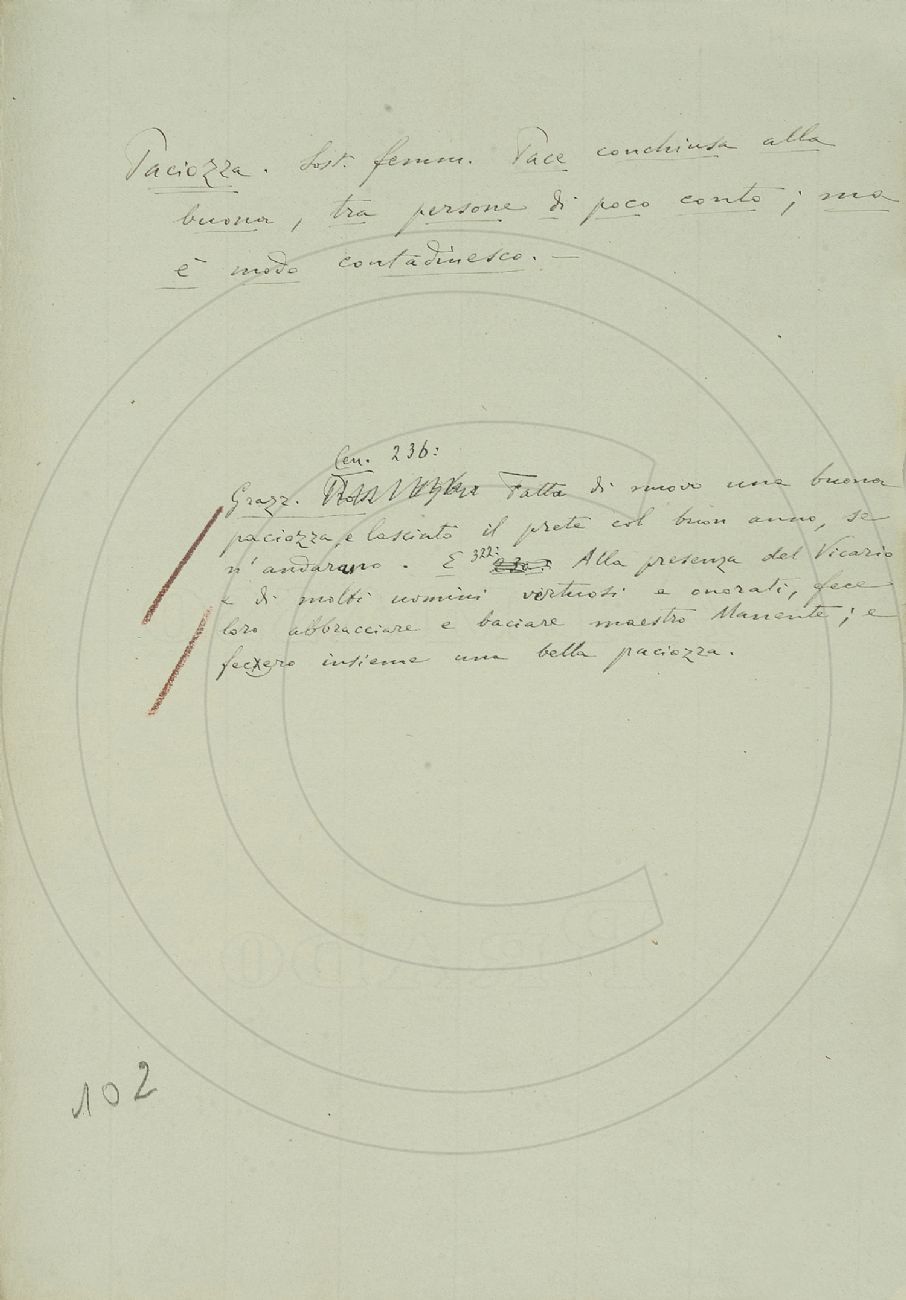 Paciozza. Sost. femm. Pace conchiusa alla
buona, tra persone di poco conto; ma
è modo contadinesco. —
Cen. 236:
Grazz. Fatta di nuovo una buona
paciozza, e lasciato il prete col buon anno, se
n'andarono. E 322: Alla presenza del Vicario
e di molti uomini virtuosi e onorati, fece
loro abbracciare e baciare maestro Manente; e
fecero insieme una bella paciozza.
102